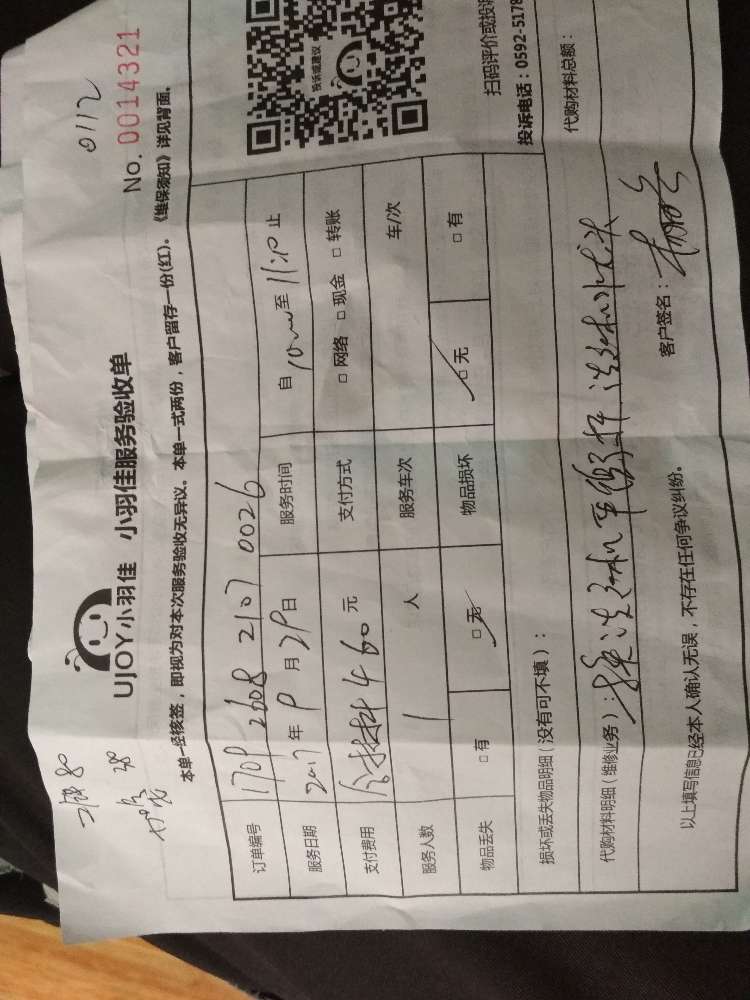 0112
No. 0014321
UJOY小羽佳 小羽佳服务验收单
本单一经核签，即视为对本次服务验收无异议。本单一式两份，客户留存一份(红)。《维保须知》详见背面。
订单编号 1709 2608 2107 0026
服务日期 2017年9月29日 服务时间 自10 至11:00止
支付费用 含材料460元 支付方式 □网络 □现金 □转账
服务人数 1人 服务车次 车/次
物品丢失 □有 □无 物品损坏 □无 □有
损坏或丢失物品明细（没有可不填）：
代购材料明细（维修业务）：换洗衣机
代购材料总额：
以上填写信息已经本人确认无误，不存在任何争议纠纷。
客户签名：
投诉或建议
扫码评价或投诉
投诉电话：0592-5178
80